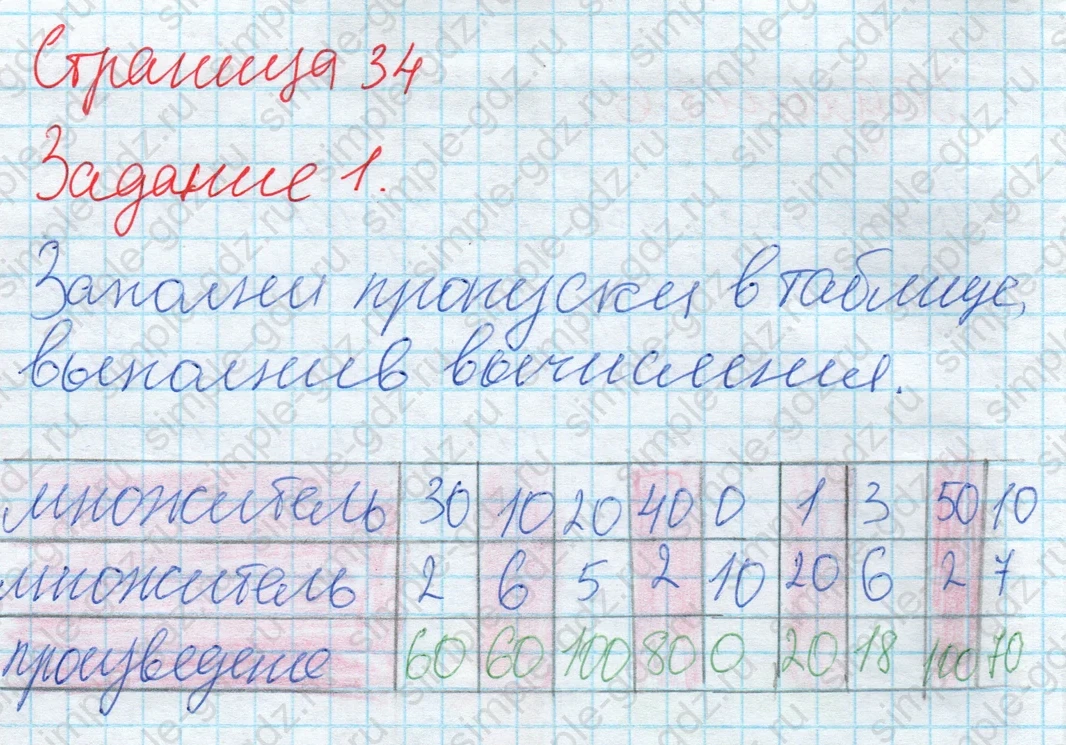 Страница 34
Задание 1.
Заполни пропуски в таблице,
выполнив вычисления.
множитель 30 10 20 40 0 1 3 50 10
множитель 2 6 5 2 10 20 6 2 7
произведение 60 60 100 80 0 20 18 100 70
simple-gdz.ru